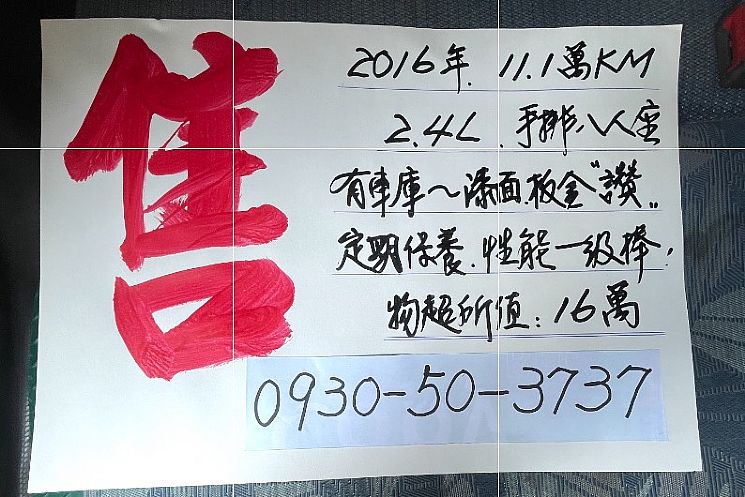 售
2016年. 11.1萬KM
2.4L. 手排八人座
有車庫~漆面板金"讚"
定期保養.性能一級棒,
物超所值:16萬
0930-50-3737